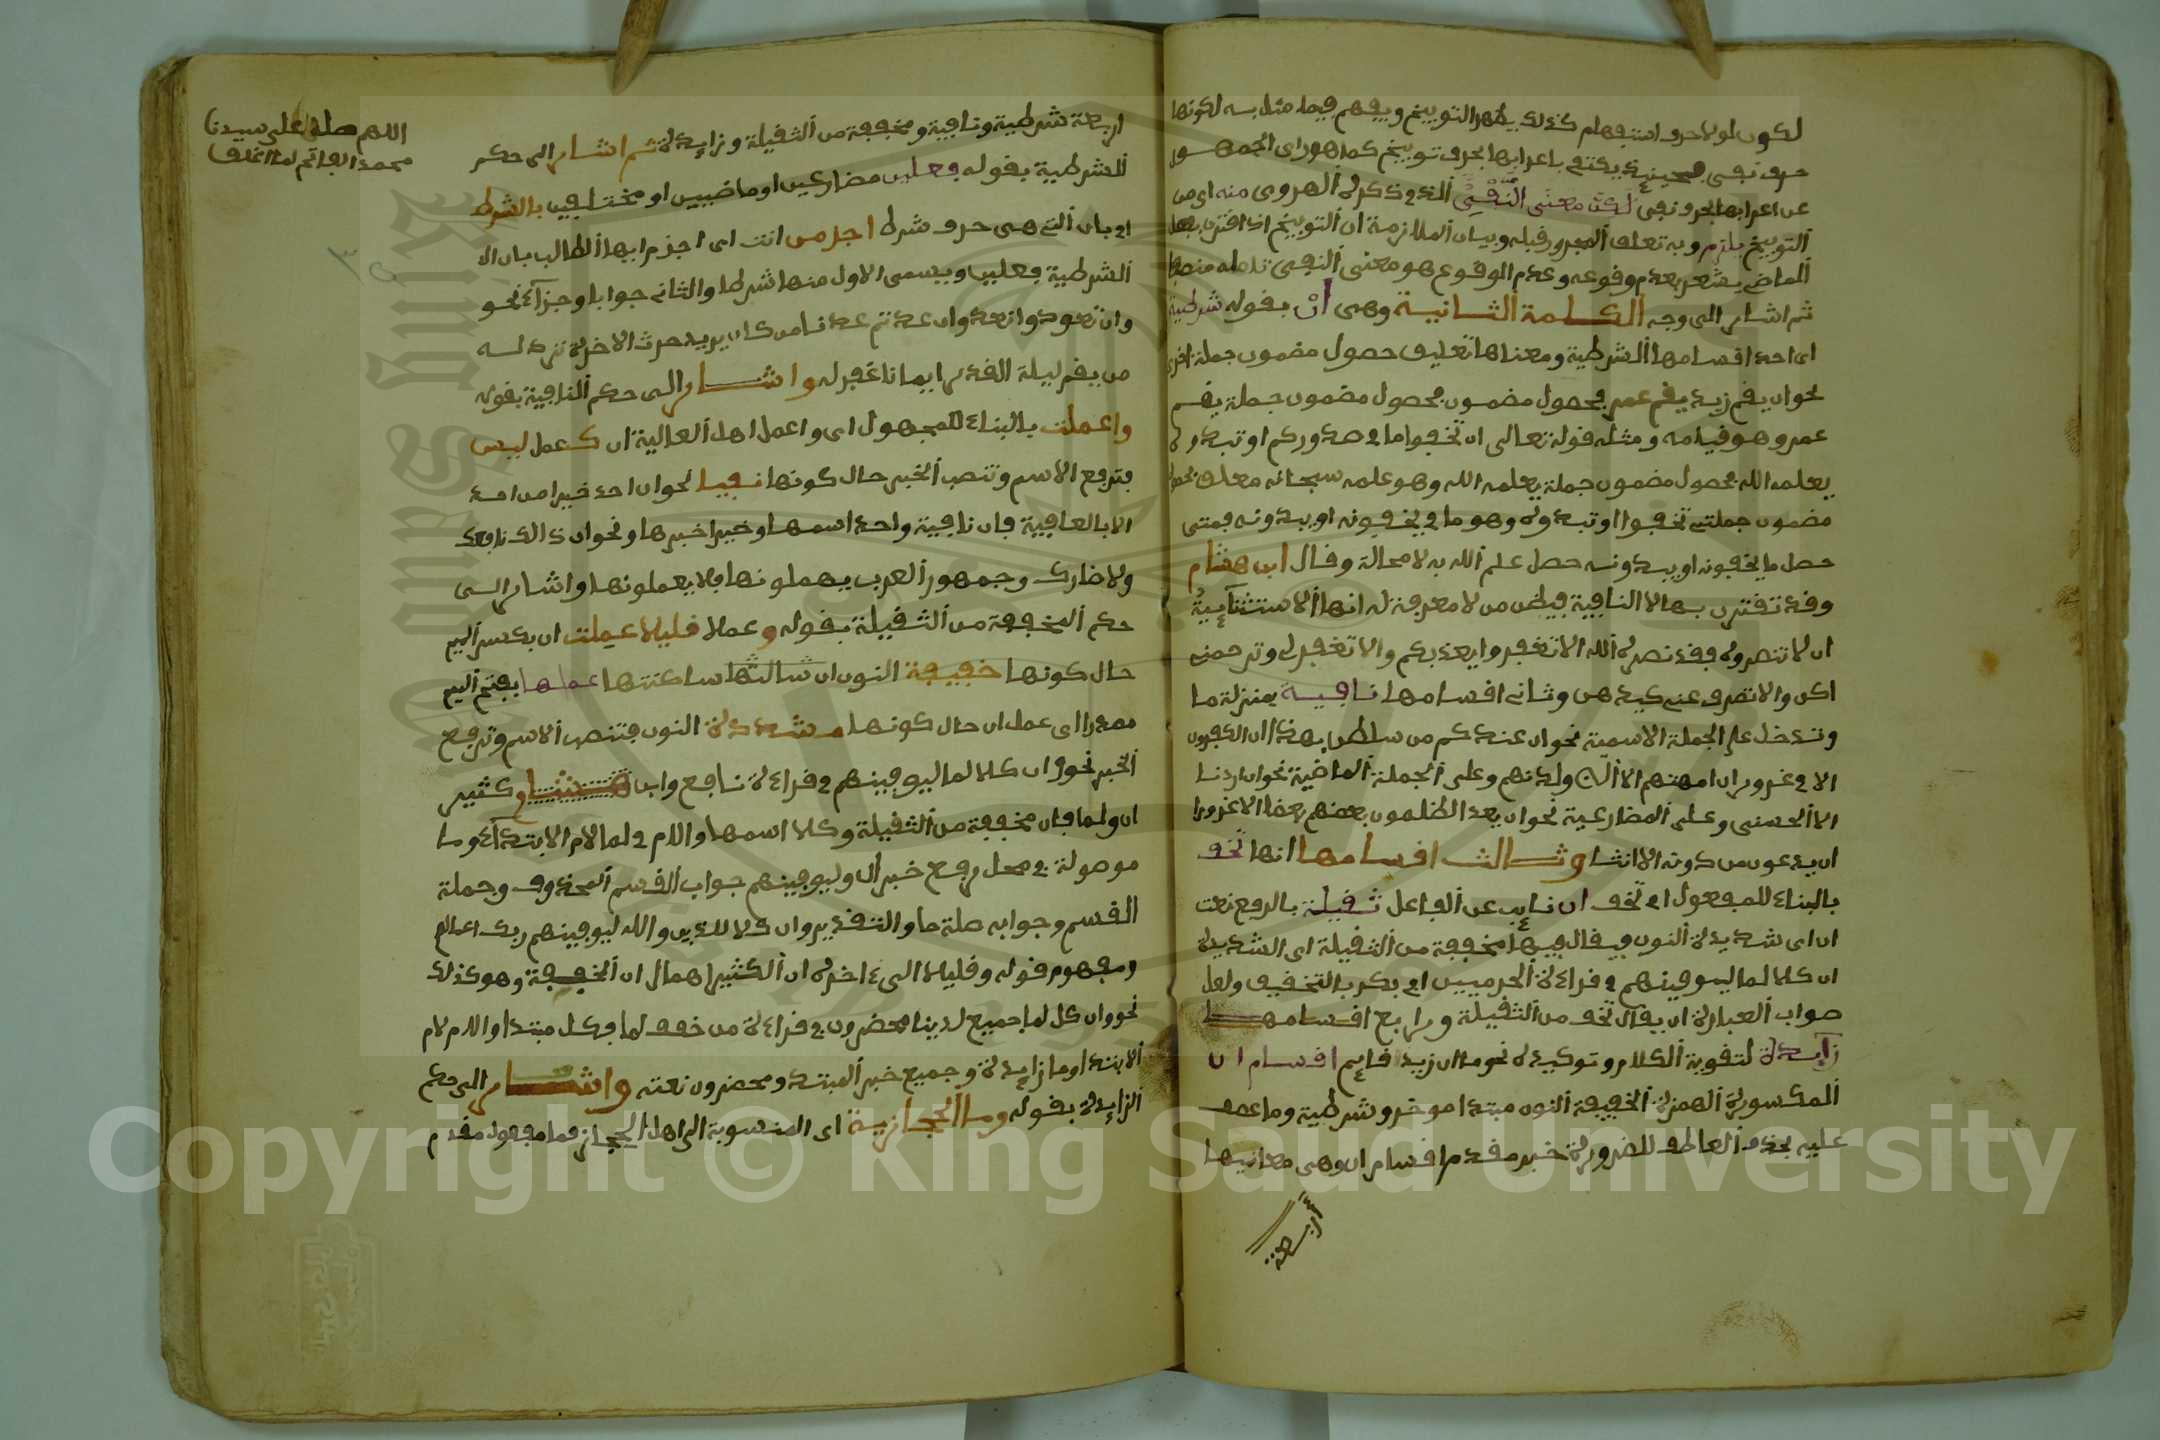 لكون لولا حرف استفهام كذلك يظهر التوبيخ ويفهم فيما مثل به لكونها
حرف نفي فحينئذ يكتفي باعرابها بحرف توبيخ كما هو راى الجمهور
عن اعرابها بحرف نفي لكن معنى النفي الذي ذكره الهروي منه اي من
التوبيخ يلزم وبه تعلق المجرور قبله وبيان الملازمة ان التوبيخ اذا اقترن بفعل
الماضي يشعر بعدم وقوعه وعدم الوقوع هو معنى النفي تامله منصفا
ثم اشار الى وجه الكلمة الثانية وهي انْ بقوله شرطية
اى احد اقسامها الشرطية ومعناها تعليق حصول مضمون جملة اخرى
نحو ان يقم زيد يقم عمر فحصول مضمون فحصول مضمون جملة يقم
عمرو وهو قيامه ومثله قوله تعالى ان تخفوا ما في صدوركم او تبدوه
يعلمه الله فحصول مضمون جملة يعلمه الله وهو علمه سبحانه معلق بحصول
مضمون جملتي تخفوا او تبدوه وهو ما في يخفونه او يبدونه فمتى
حصل ما يخفونه او يبدونه حصل علم الله به لا محالة وقال ابن هشام
وقد تقترن بها لا النافية فيظن من لا معرفة له انها الا الاستثنائية
ان لا تنصروه فقد نصره الله الا تنفروا يعذبكم والا تغفر لي وترحمني
اكن والا تصرف عني كيدهن وثاني اقسامها نافية بمنزلة ما
وتدخل على الجملة الاسمية نحو ان عندكم من سلطن بهذا ان الكفرون
الا في غرور ان امهتهم الا الى ولدنهم وعلى الجملة الماضية نحو ان اردنا
الا الحسنى وعلى المضارعية نحو ان يعد الظلمون بعضهم بعضا الا غرورا
ان يدعون من دونه الا انثا وثالث اقسامها انها تخف
بالبناء للمفعول اي تخف ان نايب عن الفاعل ثقيلة بالرفع نعت
ان اى شديدة النون ويقال فيها مخففة من الثقيلة اى الشديدة
ان كلا لما ليوفينهم في قراءة الحرميين ابي بكر بالتخفيف ولعل
صواب العبارة ان يقال تخف من الثقيلة ورابع اقسامها
زايدة لتقوية الكلام وتوكيده نحو ما ان زيد قايم اقسام ان
المكسورة الهمزة الخفيفة النون مبتدا موخر وشرطية وما عطف
عليه بحذف العاطف للضرورة خبر مقدم اقسام ان وهي معانيها
اربعة
اربعة شرطية ونافية ومخففة من الثقيلة وزايدة ثم اشار الى حكم
الشرطية بقوله فعلين مضارعين او ماضيين او مختلفين بالشرط
اي بان التي هي حرف شرط اجزمن انت اى اجزم ايها الطالب بان الا
الشرطية فعلين ويسمى الاول منها شرطا والثاني جوابا وجزاء نحو
وان تعودوا نعد وان عدتم عدنا من كان يريد حرث الاخرة نزد له
من يقم ليلة القدر ايمانا غفر له واشار الى حكم النافية بقوله
واعملت بالبناء للمجهول اى واعمل اهل العالية ان كعمل ليس
فترفع الاسم وتنصب الخبر حال كونها نفيا نحو ان احد خيرا من احد
الا بالعافية فان نافية واحد اسمها وخيرا خبرها ونحو ان ذالك نافعك
ولا ضارك وجمهور العرب يهملونها فلا يعملونها واشار الى
حكم المخففة من الثقيلة بقوله وعملا قليلا عملت ان بكسر الميم
حال كونها خفيفة النون ان شالتها ساكنتها عملها بفتح الميم
مصدرا اى عمل ان حال كونها مشددة النون فتنصب الاسم وترفع
الخبر نحو وان كلا لما ليوفينهم في قراءة نافع وابن كثير
ان ولما فان مخففة من الثقيلة وكلا اسمها واللام في لما لام الابتداء وما
موصولة في محل رفع خبر ان وليوفينهم جواب القسم المحذوف وجملة
القسم وجوابه صلة ما والتقدير وان كلا للذين والله ليوفينهم ربك اعمالهم
ومفهوم قوله وقليلا الى ءاخره ان الكثير اهمال ان الخفيفة وهو كذلك
نحو وان كل لما جميع لدينا محضرون في قراءة من خفف لما فكل مبتدا واللام لام
الابتدا وما زايدة وجميع خبر المبتدا ومحضرون نعته واشار الى حكم
الزايدة بقوله وما الحجازية اى المنسوبة الى اهل الحجاز فما مفعول مقدم
اللهم صل على سيدنا
محمد الفاتح لما اغلق